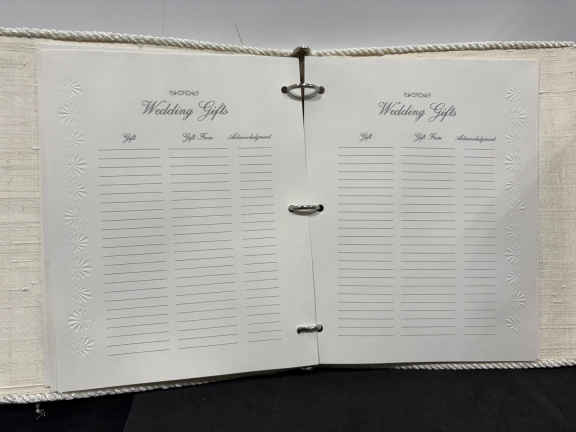 Wedding Gifts
Gift Gift From Acknowledgment
Wedding Gifts
Gift Gift From Acknowledgment